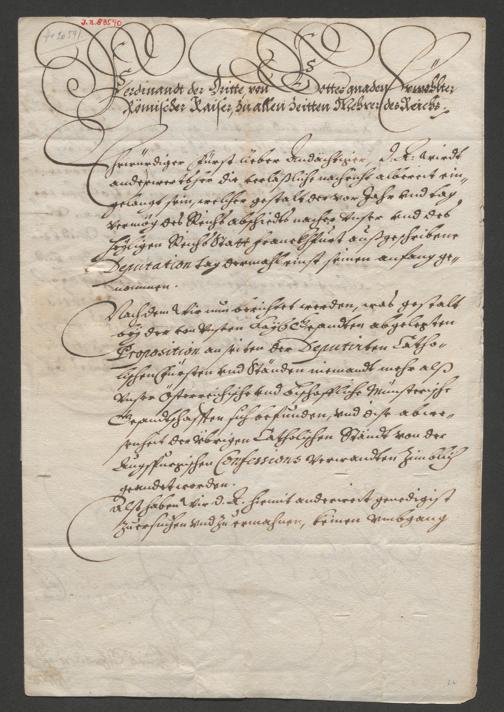 J.N. 89590
Ferdinandt der Dritte von Gottes gnaden Erwöhlter
Römischer Kaiser, zu allen Zeitten Mehrer des Reichs.
Ehrwürdiger Fürst lieber Andächtiger, D. A: wirdt
anderwerts her die verläßlich nachricht albereit ein-
gelangt sein, welcher gestalt der vor Jahr und tag
vermög des Reichs abschiedts nacher Unser und des
Heyligen Reichs Statt Franckhfurt außgeschribene
Deputation tag dermahleinst seinen anfang ge-
nommen.
Nachdem Wir nun berichtet werden, was gestalt
bey der von Unsern Kays: Gesandten abgelegten
Proposition an seiten der Deputirten Catho-
lischen Fürsten und Ständen niemandt mehr alß
Unser Österreichische und Bischoffliche Münsterische
Gesandtschafften sich befunden, und dise abwe-
senheit der übrigen Catholischen Ständt von der
Augspurgischen Confessions Verwandten zimblich
geandet worden.
Alß haben Wir D. A. hiemit anderwert genedigist
zu ersuchen und zu ermahnen, keinen umbgang